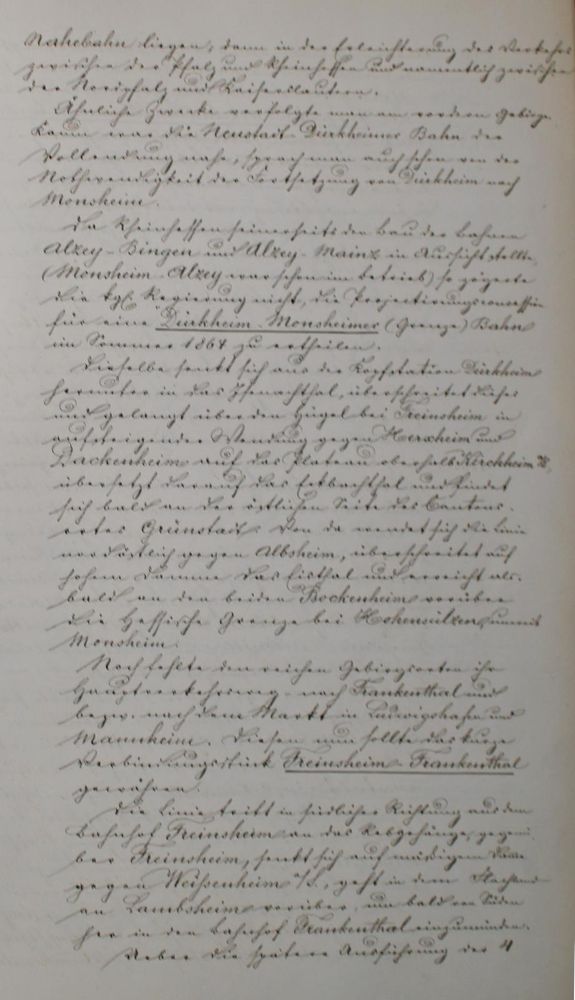 Nahebahn liegen, dann in der Erleichterung des Verkehrs
zwischen der Pfalz und Rheinhessen und namentlich zwischen
der Nordpfalz und Kaiserslautern.
Ähnliche Zwecke verfolgte man am vordern Gebirge.
Kaum war die Neustadt-Dürkheimer Bahn der
Vollendung nahe, sprach man auch schon von der
Nothwendigkeit der Fortsetzung von Dürkheim nach
Monsheim.
Da Rheinhessen seinerseits den Bau der Bahnen
Alzey-Bingen und Alzey-Mainz in Aussicht stellte,
(Monsheim-Alzey war schon im Betrieb) so zögerte
die kgl. Regierung nicht, die Projectirungsconcession
für eine Dürkheim-Monsheimer (Grenze) Bahn
im Sommer 1864 zu ertheilen.
Dieselbe senkt sich aus der Kopfstation Dürkheim
herunter in das Isenachthal, überschreitet dieses
und gelangt über den Hügel bei Freinsheim in
aufsteigender Wendung gegen Herxheim und
Dackenheim auf das Plateau oberhalb Kirchheim
übersetzt darauf das Eckbachthal und findet
sich bald an der östlichen Seite des Cantons-
ortes Grünstadt. Von da wendet sich die Linie
nordöstlich gegen Albsheim, überschreitet auf
hohem Damme das Eisthal und erreicht als-
bald an den beiden Bockenheim vorüber
die Hessische Grenze bei Hohensülzen unweit
Monsheim.
Noch fehlte den reichen Gebirgsorten ihr
Hauptverkehrsweg nach Frankenthal und
bezw. nach dem Markt in Ludwigshafen und
Mannheim. Diesen nun sollte das kurze
Verbindungsstück Freinsheim-Frankenthal
gewähren.
Die Linie tritt in südlicher Richtung aus dem
Bahnhof Freinsheim an das Rebgehänge, gegenü-
ber Freinsheim, senkt sich auf mäßigem Damm
gegen Weißenheim a/S., geht in dem Flachland
an Lambsheim vorüber, um bald von Süden
her in den Bahnhof Frankenthal einzumünden.
Ueber die spätere Ausführung der 4